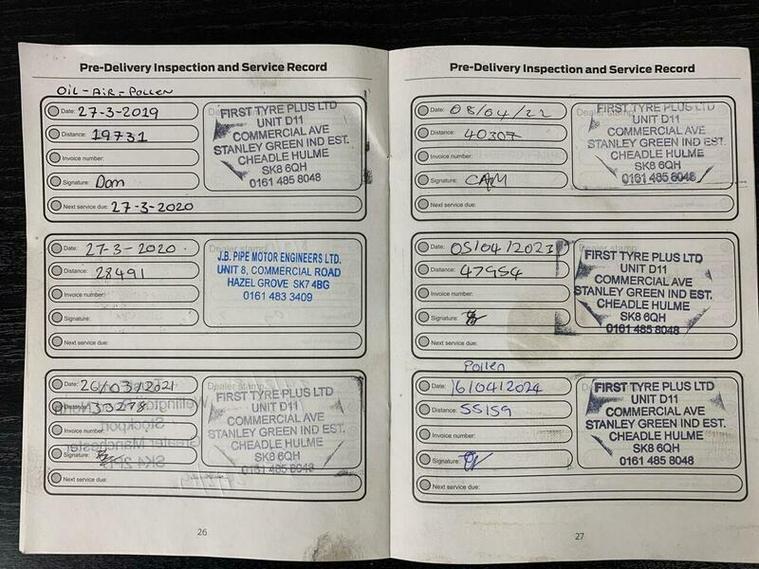 Pre-Delivery Inspection and Service Record
OIL - AIR - POLLEN
Date: 27-3-2019
Distance: 19731
Invoice number:
Signature: Dom
Next service due: 27-3-2020
FIRST TYRE PLUS LTD
UNIT D11
COMMERCIAL AVE
STANLEY GREEN IND EST.
CHEADLE HULME
SK8 6QH
0161 485 8048
Date: 27-3-2020
Distance: 28491
Invoice number:
Signature:
Next service due:
Dealer stamp
J.B. PIPE MOTOR ENGINEERS LTD.
UNIT 8, COMMERCIAL ROAD
HAZEL GROVE SK7 4BG
0161 483 3409
Date: 26/03/2021
Distance:
Invoice number:
Signature:
Next service due:
Dealer stamp
FIRST TYRE PLUS LTD
UNIT D11
COMMERCIAL AVE
STANLEY GREEN IND EST.
CHEADLE HULME
SK8 6QH
0161 485 8048
26
Pre-Delivery Inspection and Service Record
Date: 08/04/22
Distance: 40307
Invoice number:
Signature: CAM
Next service due:
FIRST TYRE PLUS LTD
UNIT D11
COMMERCIAL AVE
STANLEY GREEN IND EST.
CHEADLE HULME
SK8 6QH
0161 485 8048
Date: 05/04/2023
Distance: 47954
Invoice number:
Signature:
Next service due:
Dealer stamp
FIRST TYRE PLUS LTD
UNIT D11
COMMERCIAL AVE
STANLEY GREEN IND EST.
CHEADLE HULME
SK8 6QH
0161 485 8048
Pollen
Date: 16/04/2024
Distance: 55159
Invoice number:
Signature:
Next service due:
FIRST TYRE PLUS LTD
UNIT D11
COMMERCIAL AVE
STANLEY GREEN IND EST.
CHEADLE HULME
SK8 6QH
0161 485 8048
27